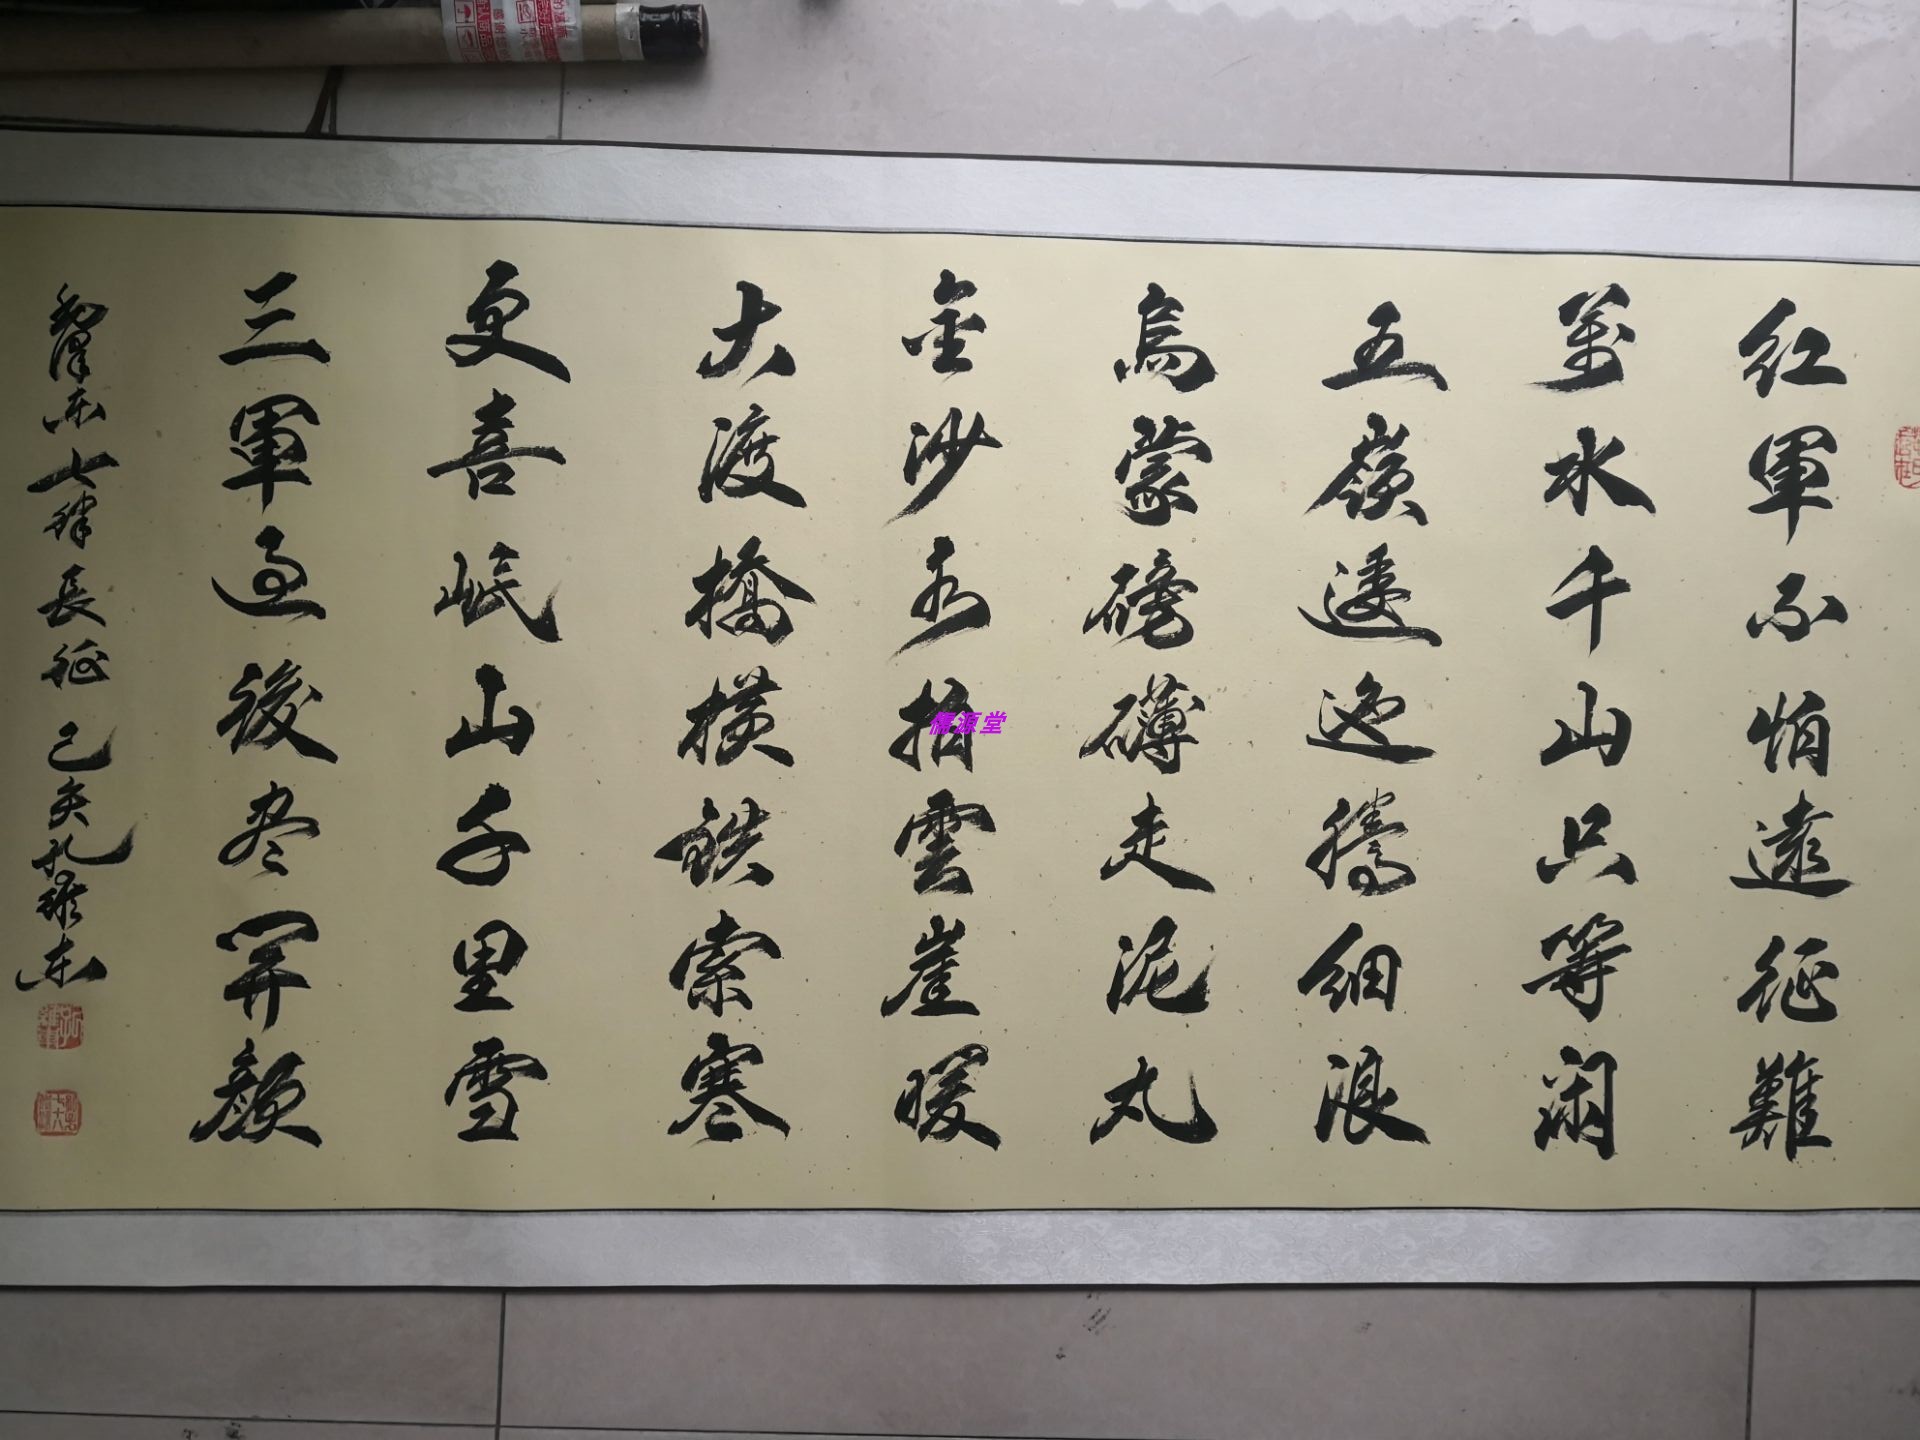 紅軍不怕遠征難
萬水千山只等閑
五嶺逶迤騰細浪
烏蒙磅礴走泥丸
金沙水拍雲崖暖
大渡橋橫鉄索寒
更喜岷山千里雪
三軍過後尽開顏
毛澤東七律長征 己亥孔維東
儒源堂